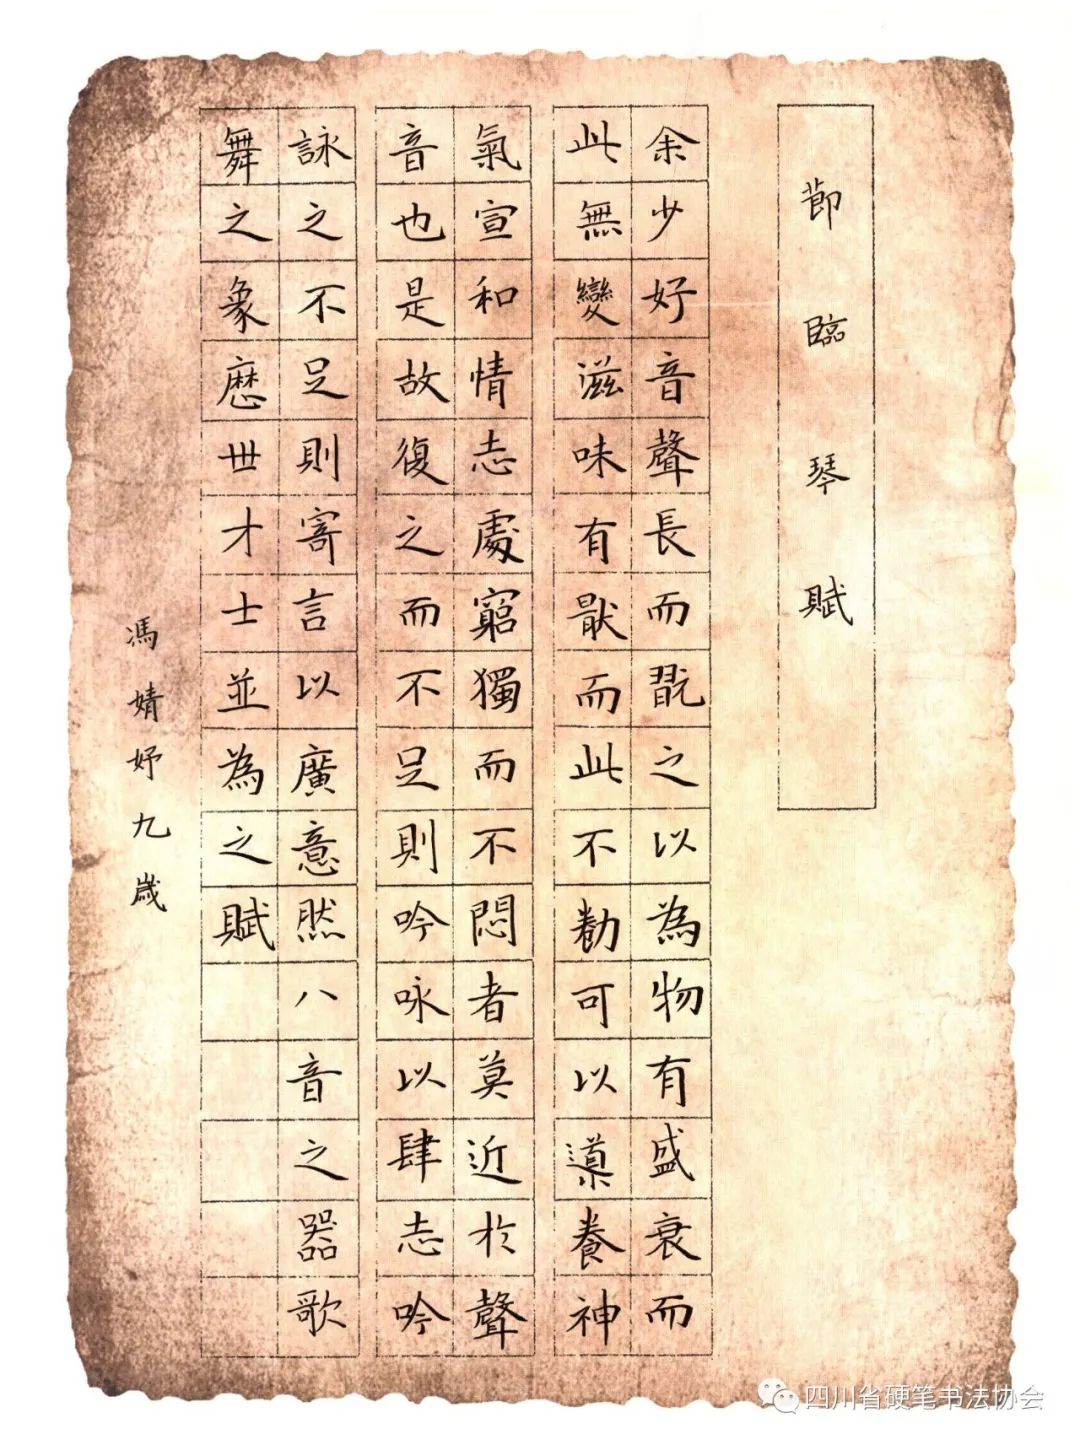 節臨琴賦
余少好音聲長而翫之以為物有盛衰而
此無變滋味有猒而此不勌可以導養神
氣宣和情志處窮獨而不悶者莫近於聲
音也是故復之而不足則吟咏以肆志吟
詠之不足則寄言以廣意然八音之器歌
舞之象歷世才士並為之賦
馮婧妤九歲
四川省硬笔书法协会